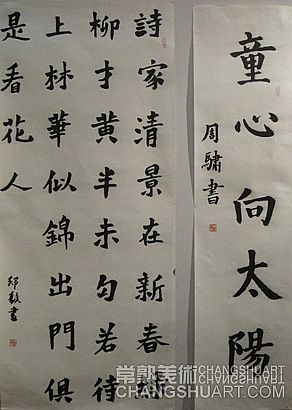 童心向太陽
周驌書
詩家清景在新春綠
柳才黄半未匀若待
上林華似錦出門俱
是看花人
書
常熟美術 CHANGSHUART